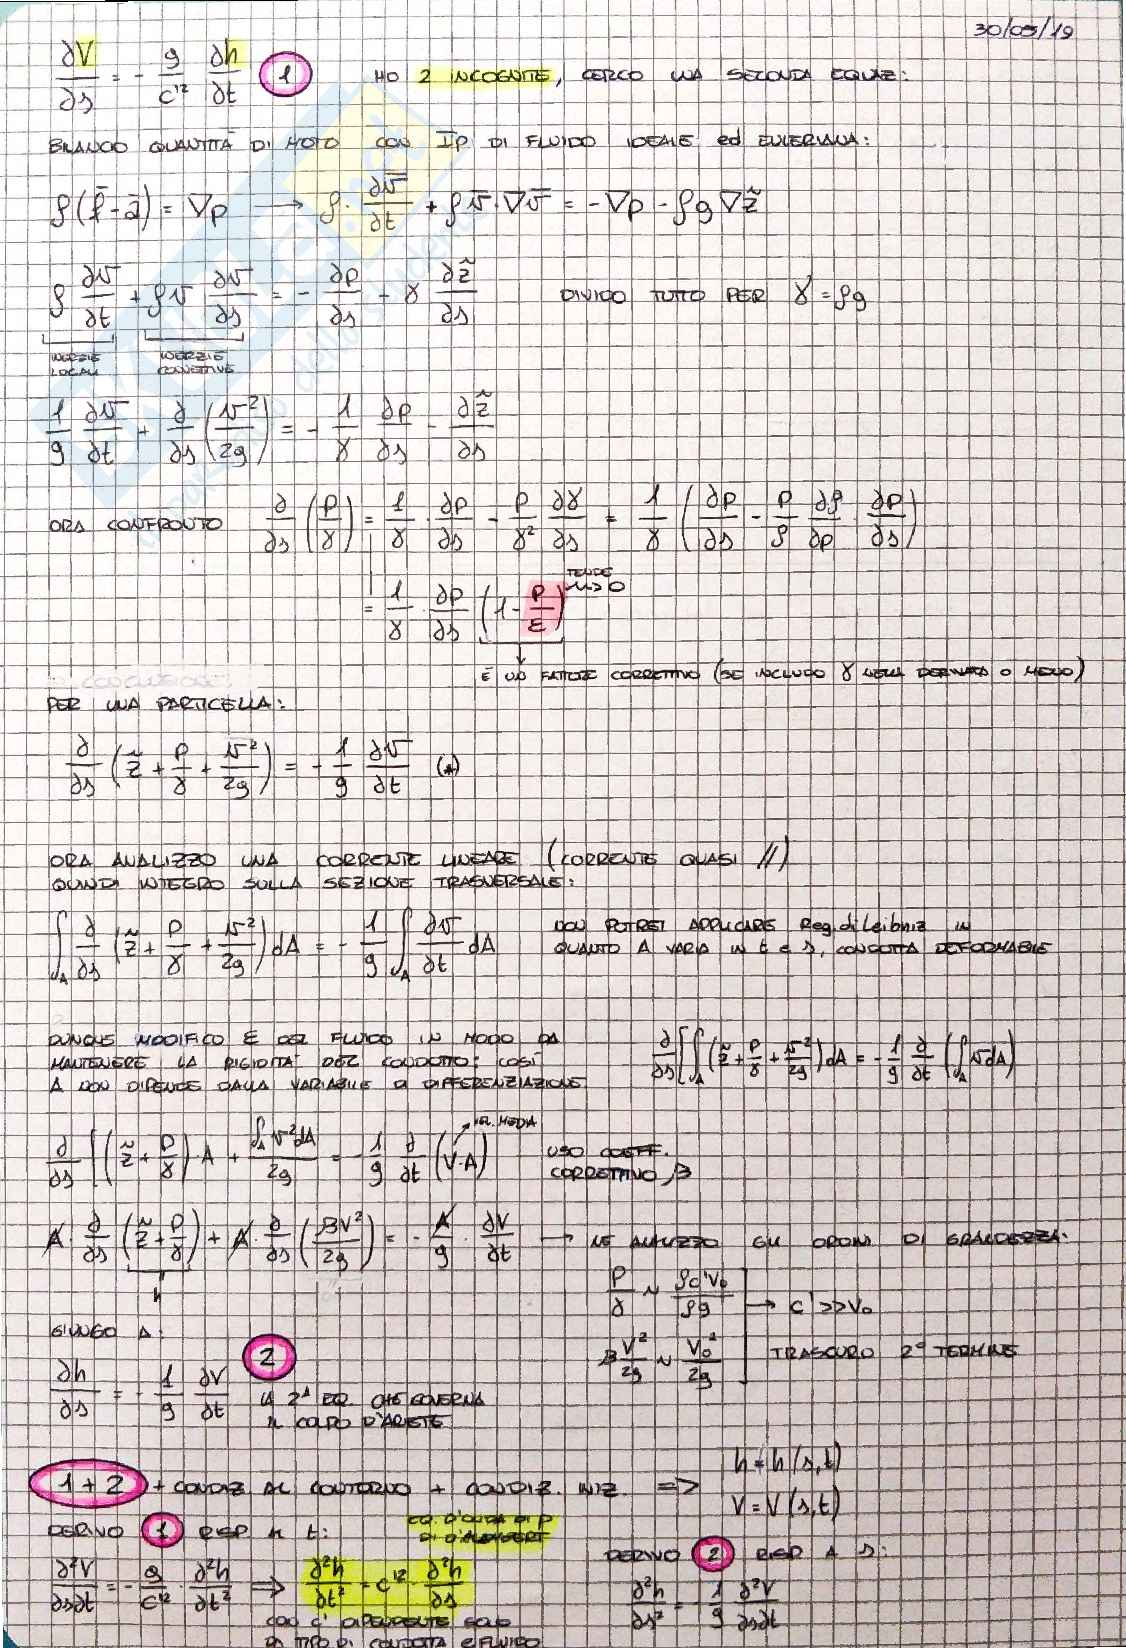 30/05/19
∂V/∂s = - g/c'² ∂h/∂t (1) HO 2 INCOGNITE, CERCO UNA SECONDA EQUAZ:
BILANCIO QUANTITÀ DI MOTO CON IP DI FLUIDO IDEALE ed EULERIANA:
ρ(f̄ - ā) = ∇p → ρ · ∂v̄/∂t + ρv̄ · ∇v̄ = -∇p - ρg∇z̃
ρ ∂v/∂t + ρv ∂v/∂s = - ∂p/∂s - γ ∂z̃/∂s DIVIDO TUTTO PER γ = ρg
INERZIE LOCALI INERZIE CONVETTIVE
1/g ∂v/∂t + ∂/∂s (v²/2g) = - 1/γ ∂p/∂s - ∂z̃/∂s
ORA CONFRONTO ∂/∂s (p/γ) = 1/γ · ∂p/∂s - p/γ² ∂γ/∂s = 1/γ (∂p/∂s - p/ρ ∂ρ/∂p · ∂p/∂s)
= 1/γ · ∂p/∂s (1 - p/ε) TENDE → 0
È UN FATTORE CORRETTIVO (SE INCLUDO γ NELLA DERIVATA O MENO)
PER UNA PARTICELLA:
∂/∂s (z̃ + p/γ + v²/2g) = - 1/g ∂v/∂t (*)
ORA ANALIZZO UNA CORRENTE LINEARE (CORRENTE QUASI //)
QUINDI INTEGRO SULLA SEZIONE TRASVERSALE:
∫_A ∂/∂s (z̃ + p/γ + v²/2g) dA = - 1/g ∫_A ∂v/∂t dA
NON POTREI APPLICARE Reg. di Leibniz IN
QUANTO A VARIA IN t E s, CONDOTTA DEFORMABILE
DUNQUE MODIFICO ε DEL FLUIDO IN MODO DA
MANTENERE LA RIGIDITÀ DEL CONDOTTO: COSÌ
A NON DIPENDE DALLA VARIABILE DI DIFFERENZIAZIONE
∂/∂s [∫_A (z̃ + p/γ + v²/2g) dA = - 1/g ∂/∂t (∫_A v dA)
∂/∂s [(z̃ + p/γ) · A + ∫_A v² dA/2g = - 1/g ∂/∂t (V·A) VEL. MEDIA
USO COEFF.
CORRETTIVO β
A · ∂/∂s (z̃ + p/γ) + A · ∂/∂s (βV²/2g) = - A/g · ∂V/∂t → NE ANALIZZO GLI ORDINI DI GRANDEZZA:
h
p/γ ~ ρc'V₀/ρg → c' >> V₀
β V²/2g ~ V₀²/2g TRASCURO 2° TERMINE
GIUNGO A:
∂h/∂s = - 1/g ∂V/∂t (2)
LA 2ª EQ. CHE GOVERNA
IL COLPO D'ARIETE
1+2 + CONDIZ AL CONTORNO + CONDIZ. INIZ. => h = h(s,t)
V = V(s,t)
DERIVO (1) RISP A t:
EQ. D'ONDA DI P
DI D'ALEMBERT
∂²V/∂s∂t = - g/c'² · ∂²h/∂t² => ∂²h/∂t² = c'² · ∂²h/∂s
CON c' DIPENDENTE SOLO
DA TIPO DI CONDOTTA E FLUIDO
DERIVO (2) RISP A s:
∂²h/∂s² = - 1/g ∂²V/∂s∂t